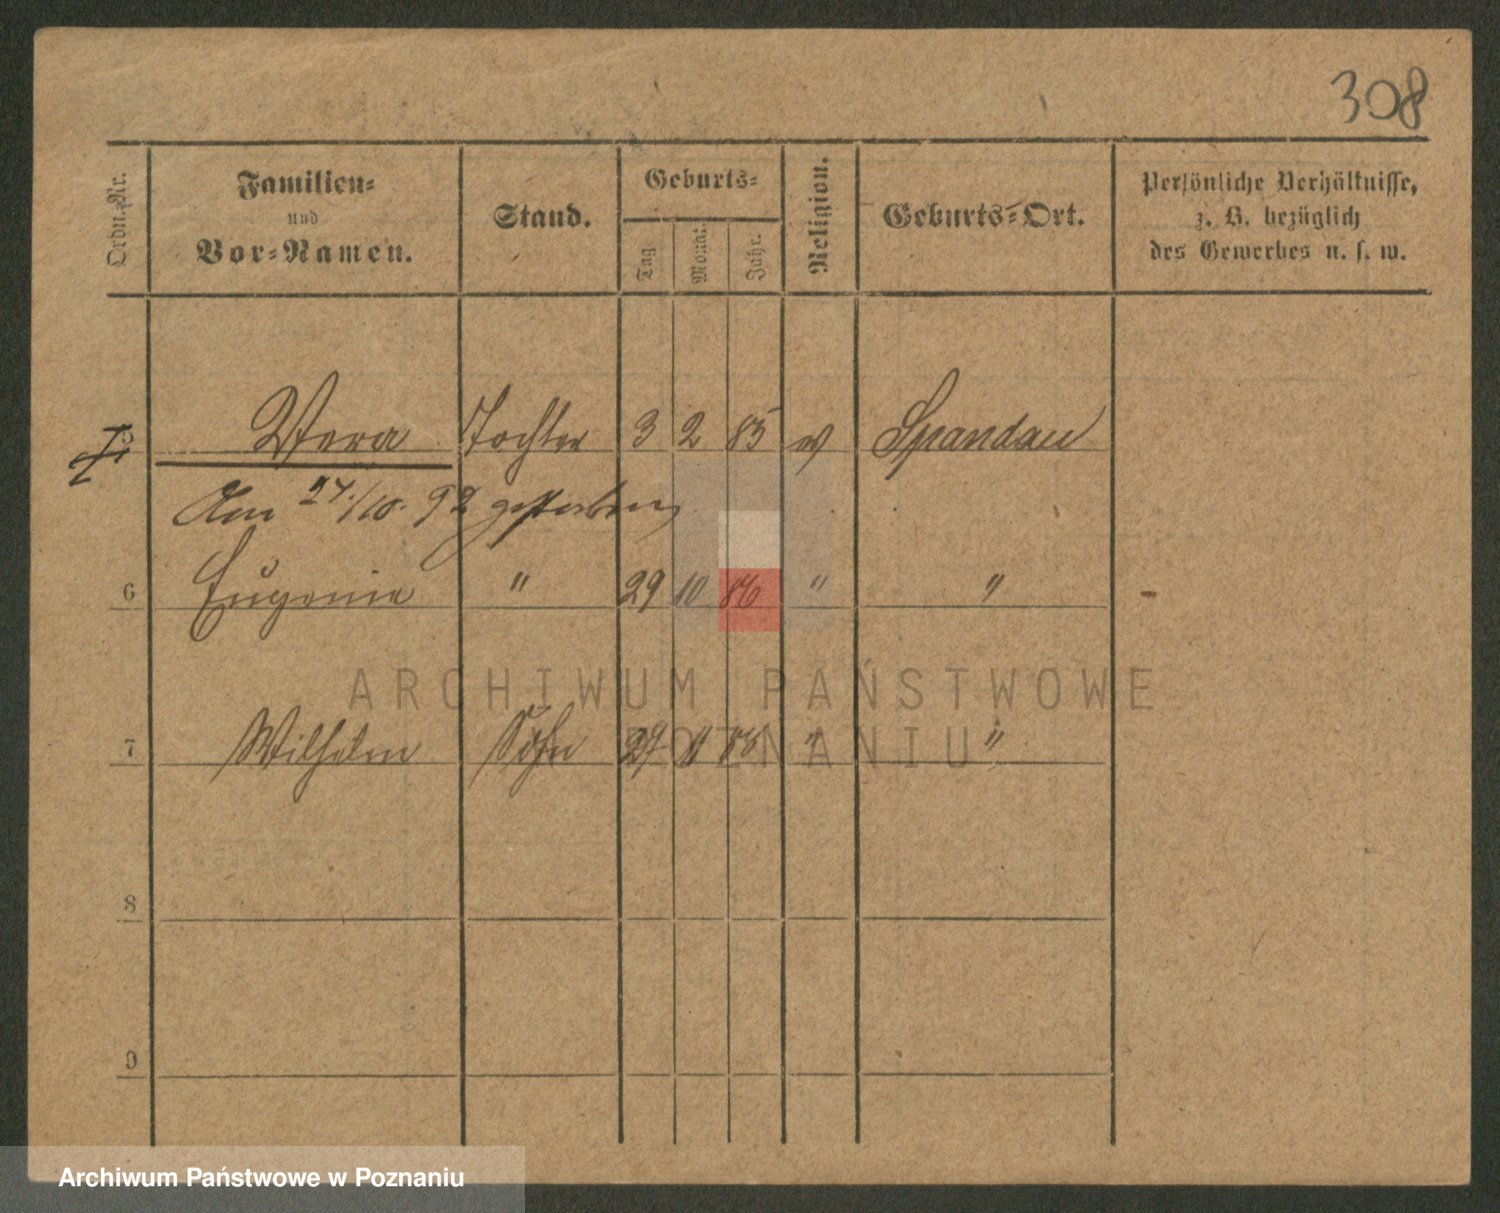 308
Ordn.-Nr.
Familien-
und
Vor-Namen.
Stand.
Geburts-
Tag
Monat.
Jahr.
Religion.
Geburts-Ort.
Persönliche Verhältnisse,
z. B. bezüglich
des Gewerbes u. s. w.
Vera Tochter 3 2 85 Spandau
Am 24./10. 92 gestorben
6 Eugenie " 29 10 86 " "
ARCHIWUM PAŃSTWOWE
7 Wilhelm Sohn 27 11 88 " "
POZNANIU
8
9
Archiwum Państwowe w Poznaniu